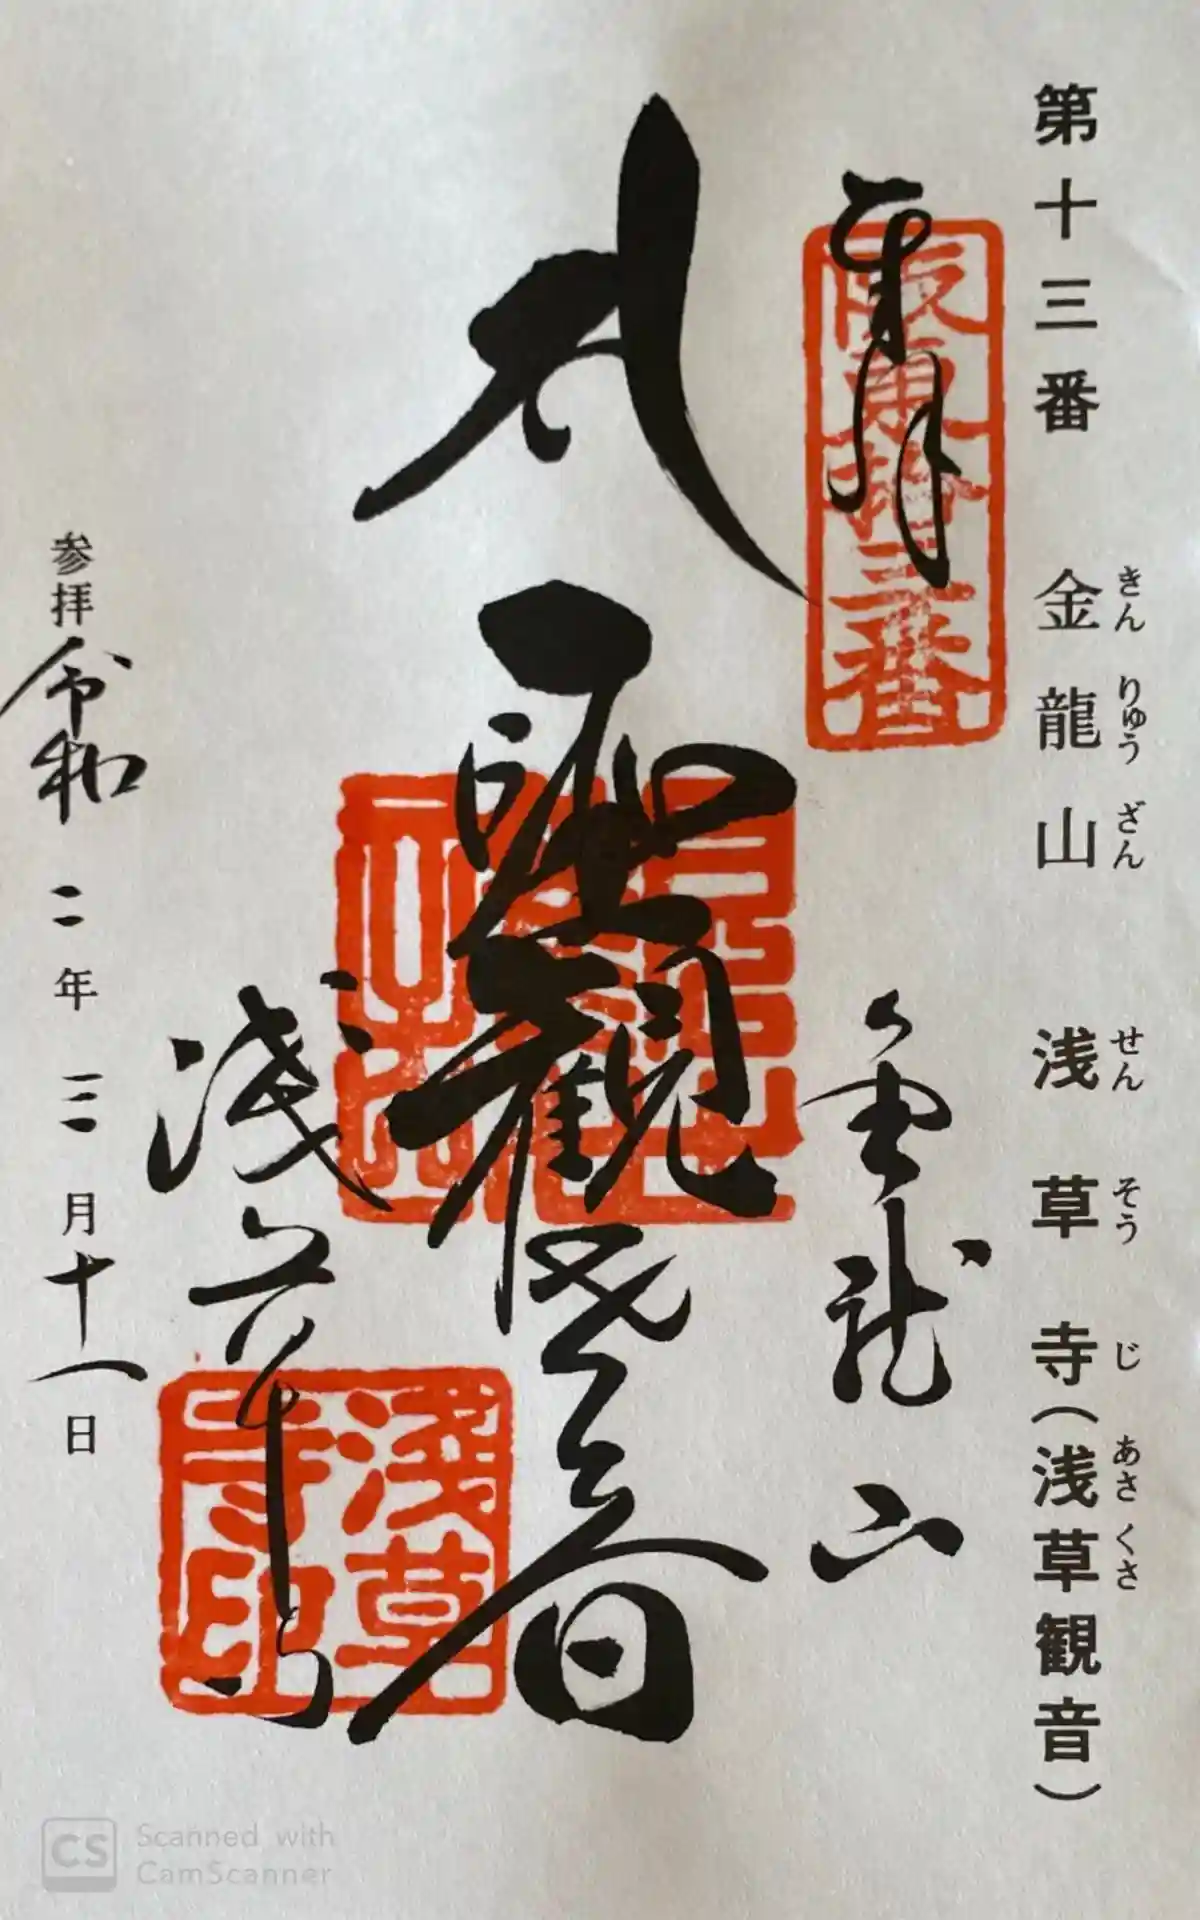 第十三番 金龍山 浅草寺(浅草観音)
きんりゅうざん せんそうじ あさくさ
奉拝
阪東拾三番
金龍山
聖観世音
浅草寺
浅草寺印
参拝令和二年三月十八日
CS Scanned with
CamScanner